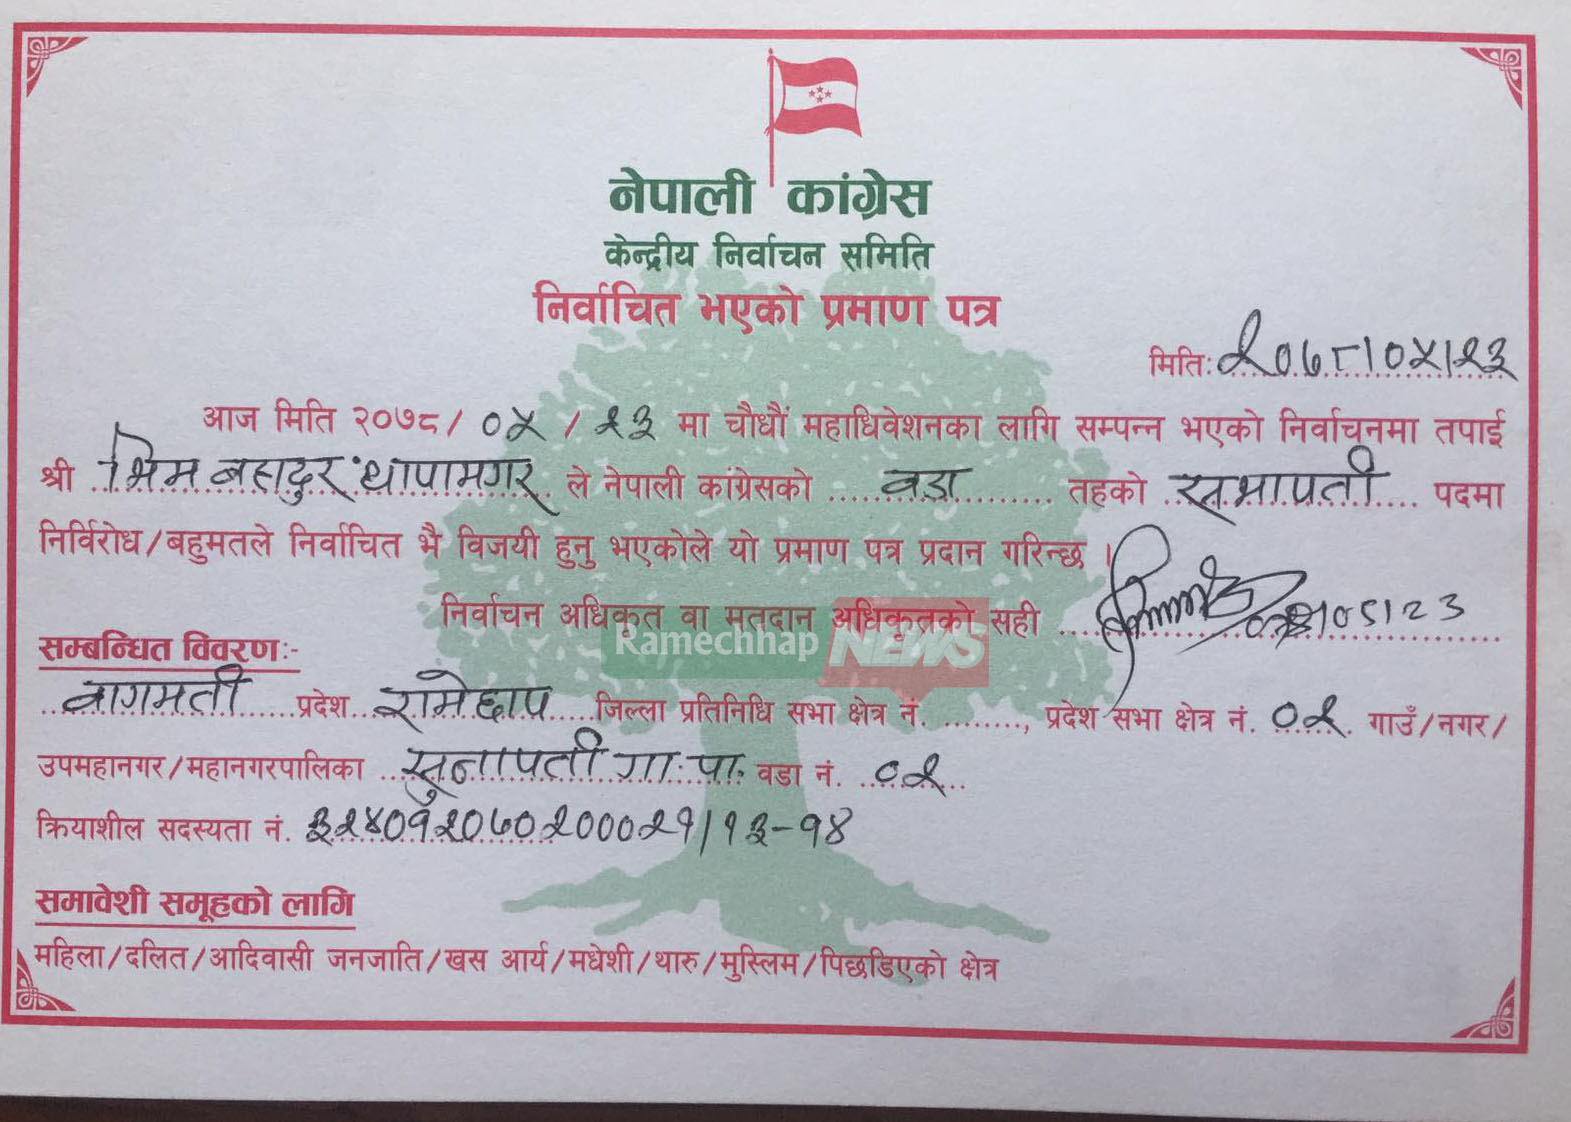 नेपाली कांग्रेस
केन्द्रीय निर्वाचन समिति
निर्वाचित भएको प्रमाण पत्र
मिति: २०७८।०५।२३
आज मिति २०७८/ ०५ / २३ मा चौधौं महाधिवेशनका लागि सम्पन्न भएको निर्वाचनमा तपाई
श्री भिम बहादुर थापामगर ले नेपाली कांग्रेसको वडा तहको सभापती पदमा
निर्विरोध/बहुमतले निर्वाचित भै विजयी हुनु भएकोले यो प्रमाण पत्र प्रदान गरिन्छ ।
निर्वाचन अधिकृत वा मतदान अधिकृतको सही
Ramechhap NEWS
सम्बन्धित विवरण:-
वागमती प्रदेश रामेछाप जिल्ला प्रतिनिधि सभा क्षेत्र नं. ........, प्रदेश सभा क्षेत्र नं. ०२ गाउँ/नगर/
उपमहानगर/महानगरपालिका सुनापती गा.पा. वडा नं. ०२
क्रियाशील सदस्यता नं. ३२४०१२०७०२०००२१/१३-१४
समावेशी समूहको लागि
महिला/दलित/आदिवासी जनजाति/खस आर्य/मधेशी/थारु/मुस्लिम/पिछडिएको क्षेत्र